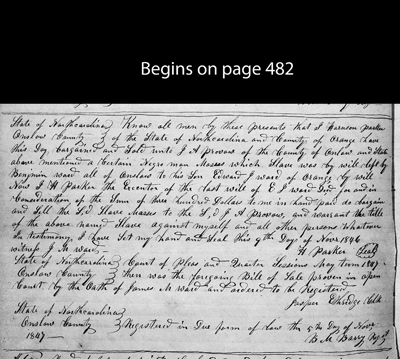 Begins on page 482
State of Northcarolina Know all men by these presents that I Harrison Parker
Onslow County of the State of Northcarolina and County of Orange have
this Day bargained and Sold unto J A Provow of the County of Onslow and State
above mentioned a Certain Negro man Mosses which Slave was by will left by
Benjmin ward all of Onslow to his Son Edward J ward of Orange by will
Now I H Parker the Excentor of the last will of E J ward Decd for and in
Consideration of the Sum of three hundred Dollars to me in hand paid do bargain
and Sell the Sd Slave Mosses to the S,d J A Provow, and warrant the title
of the above named Slave against myself and all other persons whatsoever
In testimony I have Set my hand and Seal this 9th Day of Novr 1846
witness J M ward H Parker Seal
State of Northcarolina Court of Pleas and Quarter Sessions May term 1847
Onslow County then was the foregoing Bill of Sale proven in open
Court by the Oath of James M ward and ordered to be Registered
Jasper Ethridge Clk
State of Northcarolina
Onslow County Registered in Due form of Law this 9th Day of Novr
1847 B M Barry